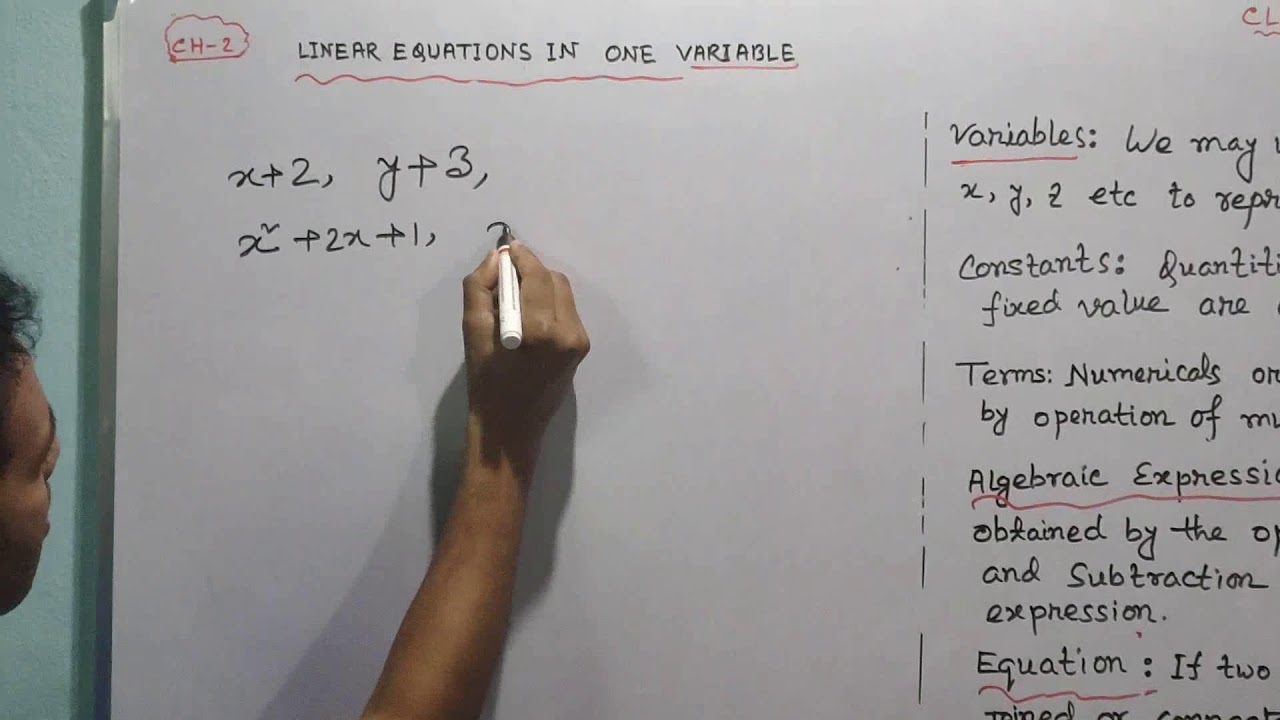 CH-2
LINEAR EQUATIONS IN ONE VARIABLE
x+2, y+3,
x²+2x+1,
CL
Variables: We may
x, y, z etc to repr
Constants: Quantiti
fixed value are
Terms: Numericals or
by operation of mu
Algebraic Expressio
obtained by the op
and Subtraction
expression.
Equation: If two
joined or connect